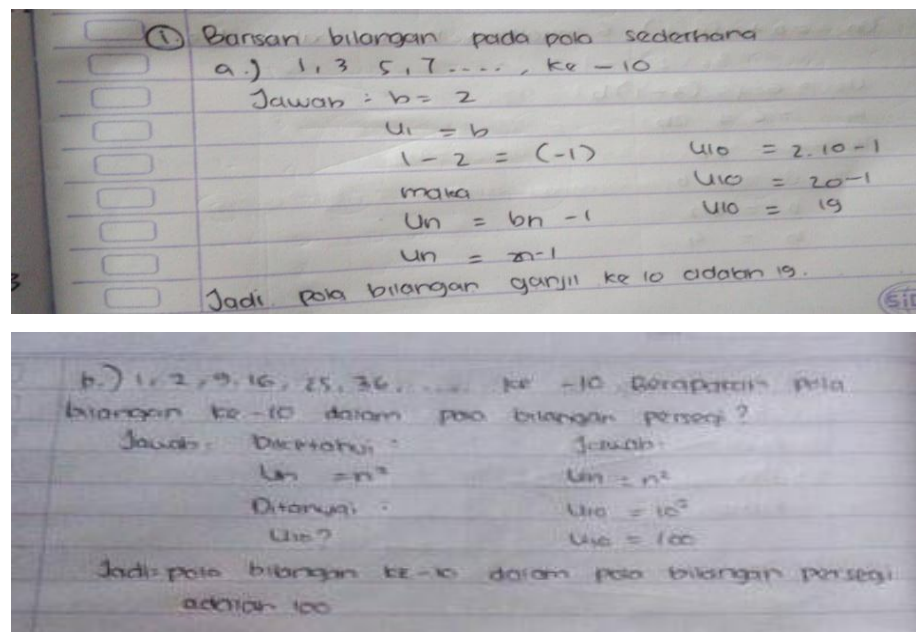 ① Barisan bilangan pada pola sederhana
a.) 1, 3 5, 7 ...., ke - 10
Jawab : b = 2
U1 = b
1 - 2 = (-1)
maka
Un = bn - 1
Un = 2n-1
U10 = 2.10-1
U10 = 20-1
U10 = 19
Jadi pola bilangan ganjil ke 10 adalah 19.
b.) 1, 2, 9, 16, 25, 36, ..... ke - 10 Berapakah pola
bilangan ke-10 dalam pola bilangan persegi?
Jawab: Diketahui :
Un = n²
Ditanya :
U10?
Jawab:
Un = n²
U10 = 10²
U10 = 100
Jadi pola bilangan ke-10 dalam pola bilangan persegi
adalah 100